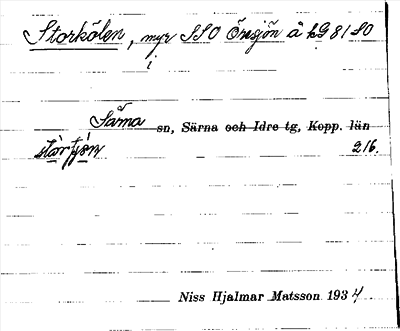 Storkölen, myr SSO Öresjön å kG 81 SO
i
Särna sn, Särna och Idre tg, Kopp. län
216.
Niss Hjalmar Matsson 1934